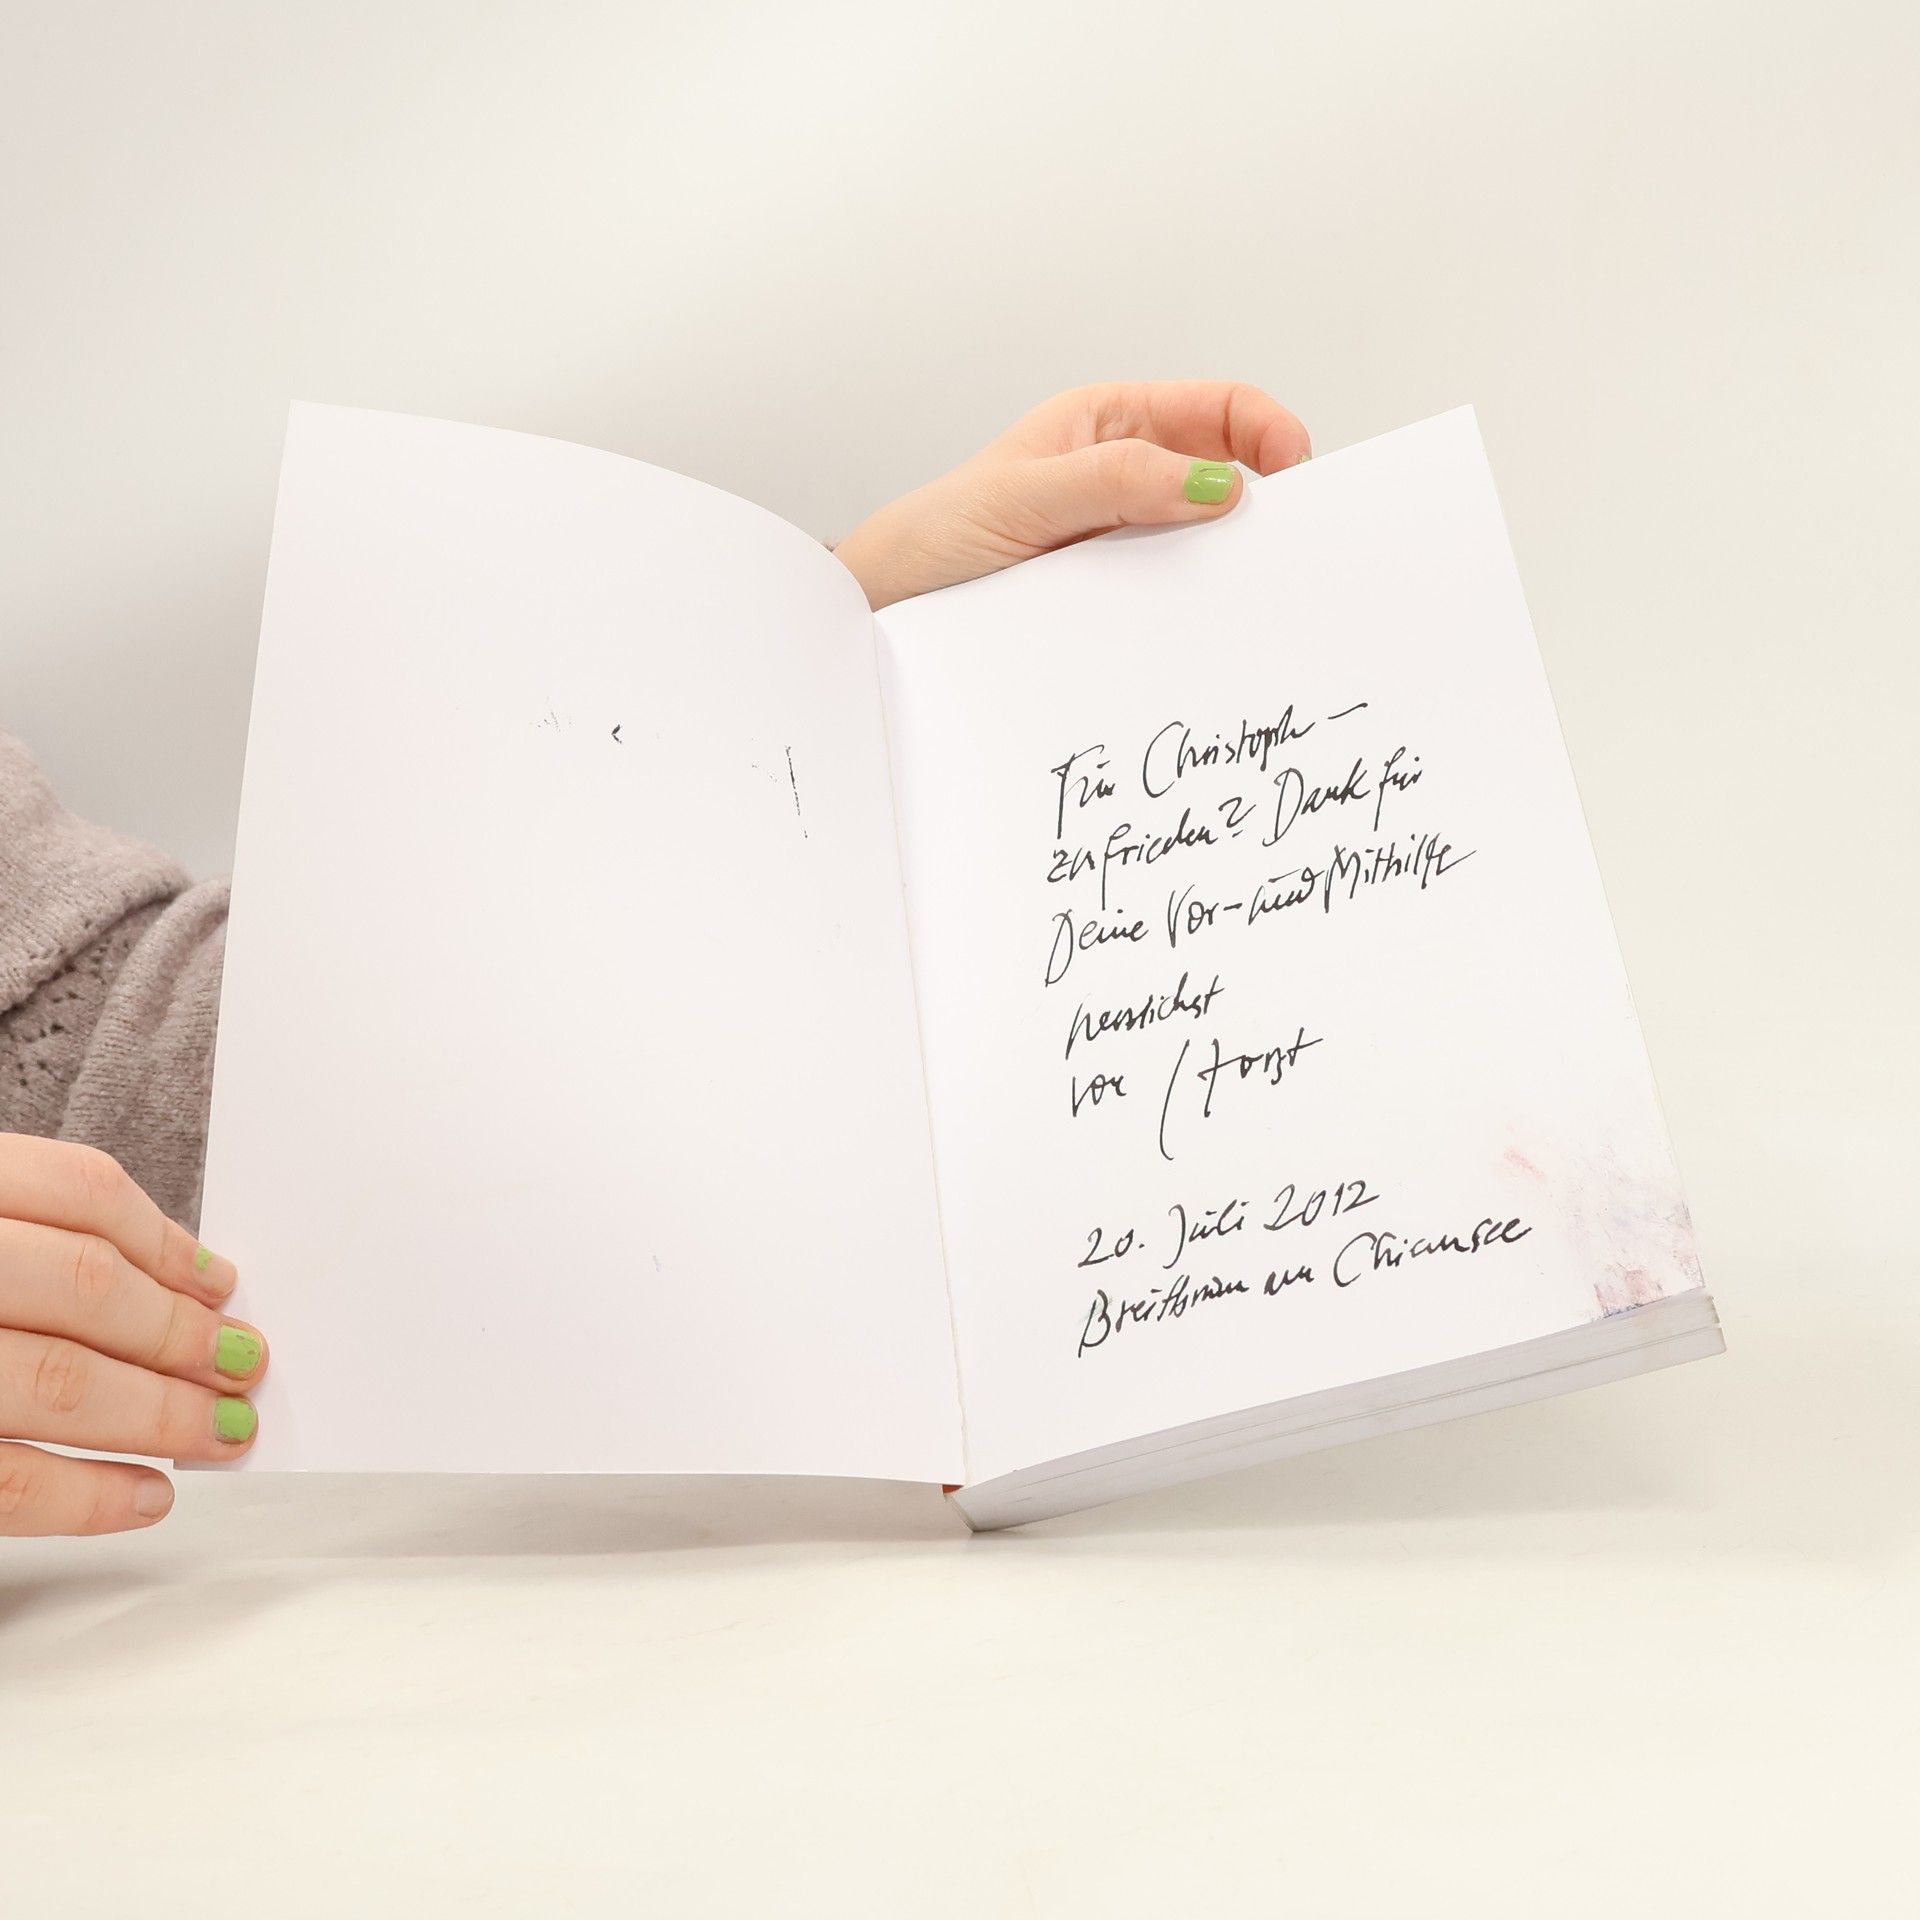 Für Christoph –
zufrieden? Dank für
Deine Vor- und Mithilfe
herzlichst
von Horst
20. Juli 2012
Breitbrunn am Chiemsee